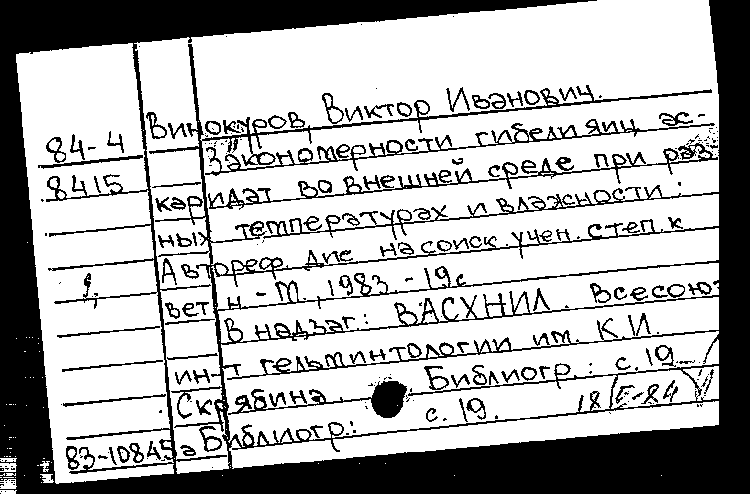 Винокуров, Виктор Иванович.
84-4 Закономерности гибели яиц ас-
8415 каридат во внешней среде при раз
ных температурах и влажности:
Автореф дис на соиск. учен. степ. к
вет н. - М., 1983. - 19 с
В надзаг: ВАСХНИЛ. Всесоюз
ин-т гельминтологии им. К.И.
Скрябина. Библиогр.: с. 19
Библиогр.: с. 19.
83-10845а